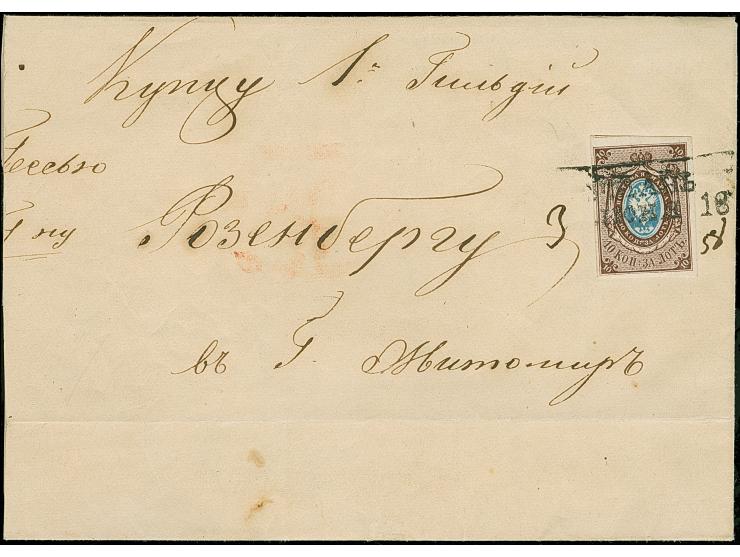 Купцу 1й Гильдіи
Гессью
Г ну
Розенбергу 3
въ Г. Житомиръ
10 КОП. ЗА ЛОТЪ.
18